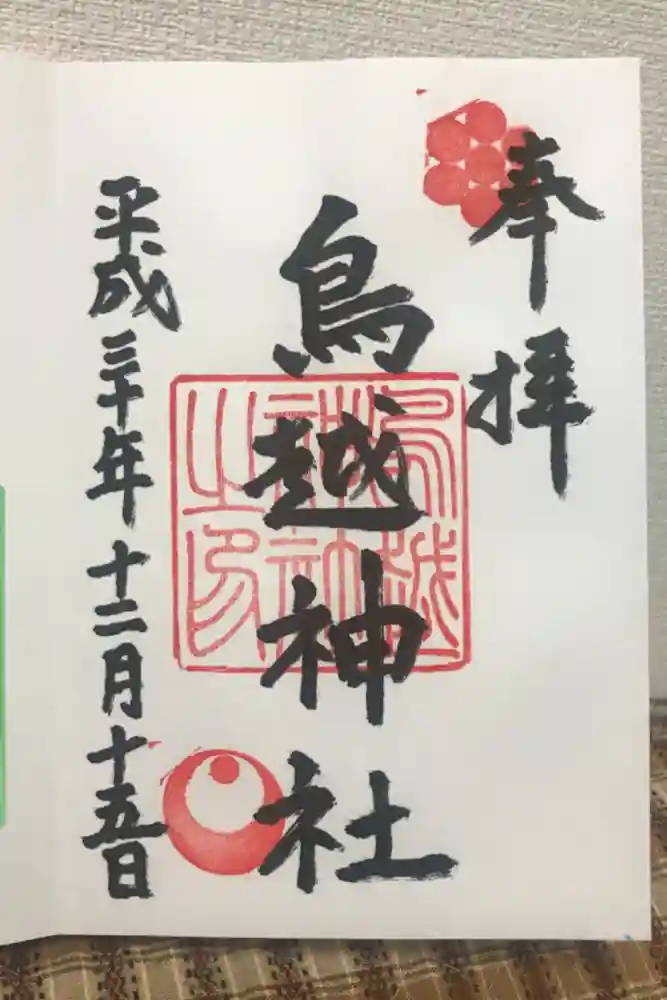 奉拝
鳥越神社
鳥越神社之印
平成三十年十二月十五日